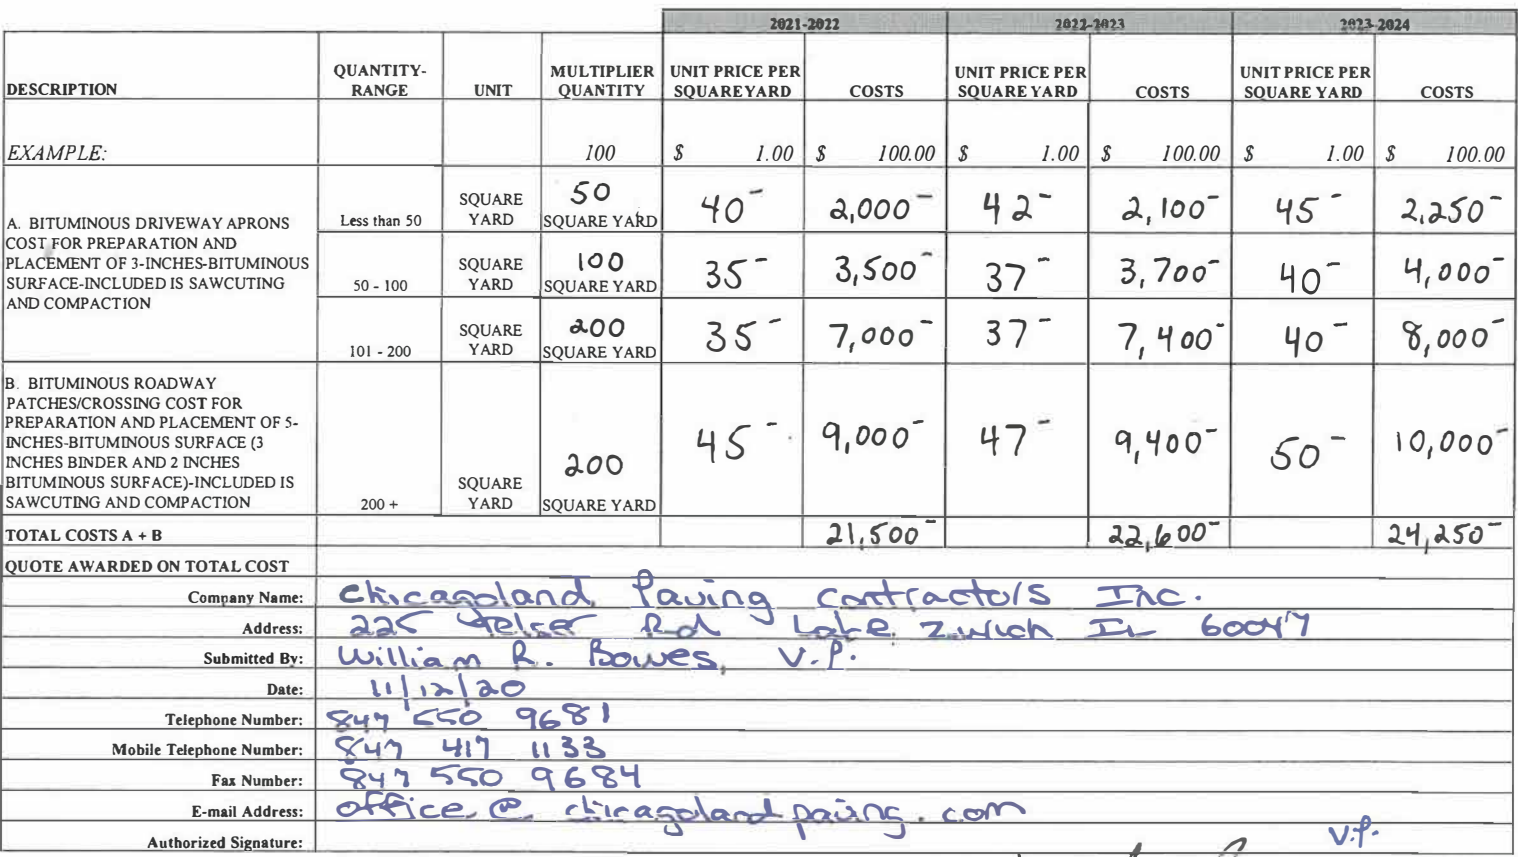 2021-2022 2022-2023 2023-2024
DESCRIPTION QUANTITY-RANGE UNIT MULTIPLIER QUANTITY UNIT PRICE PER SQUARE YARD COSTS UNIT PRICE PER SQUARE YARD COSTS UNIT PRICE PER SQUARE YARD COSTS
EXAMPLE: 100 $ 1.00 $ 100.00 $ 1.00 $ 100.00 $ 1.00 $ 100.00
A. BITUMINOUS DRIVEWAY APRONS
COST FOR PREPARATION AND
PLACEMENT OF 3-INCHES-BITUMINOUS
SURFACE-INCLUDED IS SAWCUTING
AND COMPACTION
Less than 50 SQUARE YARD 50 SQUARE YARD 40- 2,000- 42- 2,100- 45- 2,250-
50 - 100 SQUARE YARD 100 SQUARE YARD 35- 3,500- 37- 3,700- 40- 4,000-
101 - 200 SQUARE YARD 200 SQUARE YARD 35- 7,000- 37- 7,400- 40- 8,000-
B. BITUMINOUS ROADWAY
PATCHES/CROSSING COST FOR
PREPARATION AND PLACEMENT OF 5-
INCHES-BITUMINOUS SURFACE (3
INCHES BINDER AND 2 INCHES
BITUMINOUS SURFACE)-INCLUDED IS
SAWCUTING AND COMPACTION
200 + SQUARE YARD 200 SQUARE YARD 45- 9,000- 47- 9,400- 50- 10,000-
TOTAL COSTS A + B 21,500- 22,600- 24,250-
QUOTE AWARDED ON TOTAL COST
Company Name: Chicagoland Paving Contractors Inc.
Address: 225 Telser Rd Lake Zurich IL 60047
Submitted By: William R. Bowes, V.P.
Date: 11/12/20
Telephone Number: 847 550 9681
Mobile Telephone Number: 847 417 1133
Fax Number: 847 550 9684
E-mail Address: office@chicagolandpaving.com
Authorized Signature: V.P.